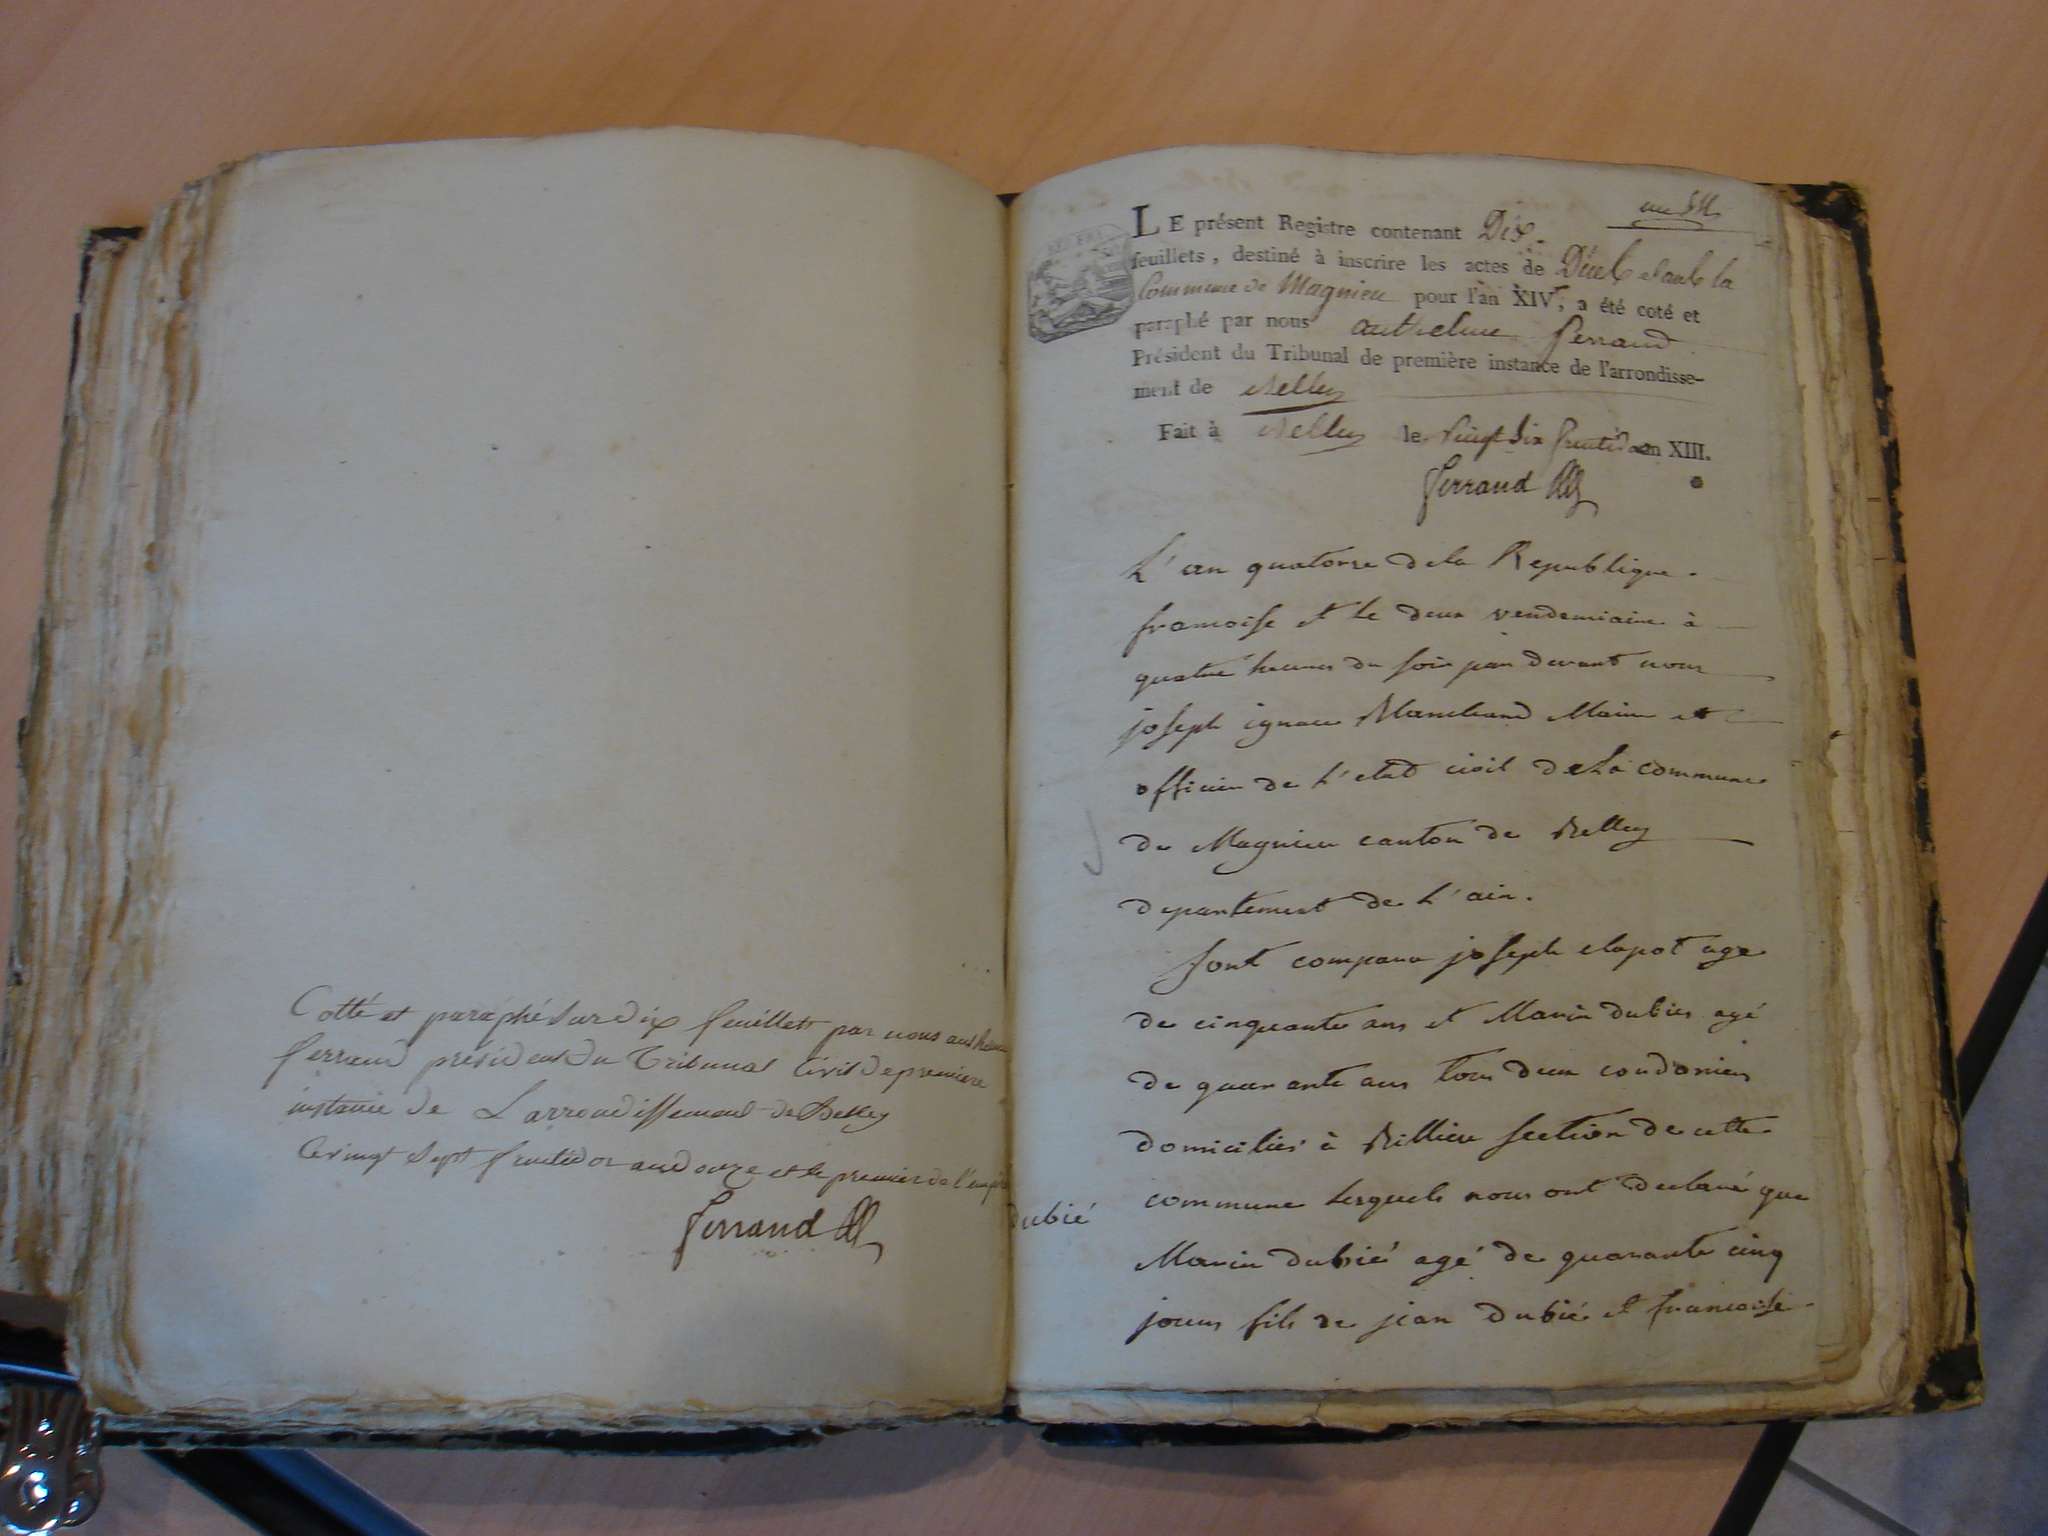 Cotté et paraphé sur dix feuillets par nous anthelme
ferrand président du Tribunal Civil de premiere
instance de L'arrondissement de Belley
le vingt sept fructidor an douze et le premier de l'empire
ferrand
an 14
LE présent Registre contenant Dix
feuillets, destiné à inscrire les actes de Décès dans la
Commune de Magnieu pour l'an XIV, a été coté et
paraphé par nous anthelme ferrand
Président du Tribunal de première instance de l'arrondisse-
ment de Belley
Fait à Belley le vingt six fructidor an XIII.
ferrand
L'an quatorze de la Republique
francoise et le deux vendemiaire à
quatre heures du soir par devant nous
joseph ignace Marchand Maire et
officier de L'etat civil de La commune
de Magnieu canton de Belley
departement de L'ain.
sont comparu joseph clapot age
de cinquante ans et Marin dubié agé
de quarante ans tous deux
domiciliés à Billieu section de cette
commune lesquels nous ont declaré que
dubié
Marin dubié agé de quarante cinq
jours fils de jean dubié et francoise